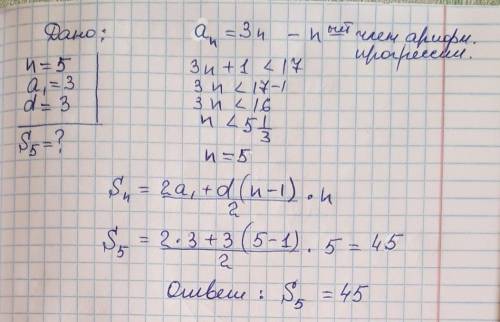 Дано:
n = 5
a₁ = 3
d = 3
S₅ = ?
aₙ = 3n – nный член арифм. прогрессии.
3n + 1 < 17
3n < 17 - 1
3n < 16
n < 5 1/3
n = 5
Sₙ = (2a₁ + d(n-1))/2 · n
S₅ = (2·3 + 3(5-1))/2 · 5 = 45
Ответ: S₅ = 45